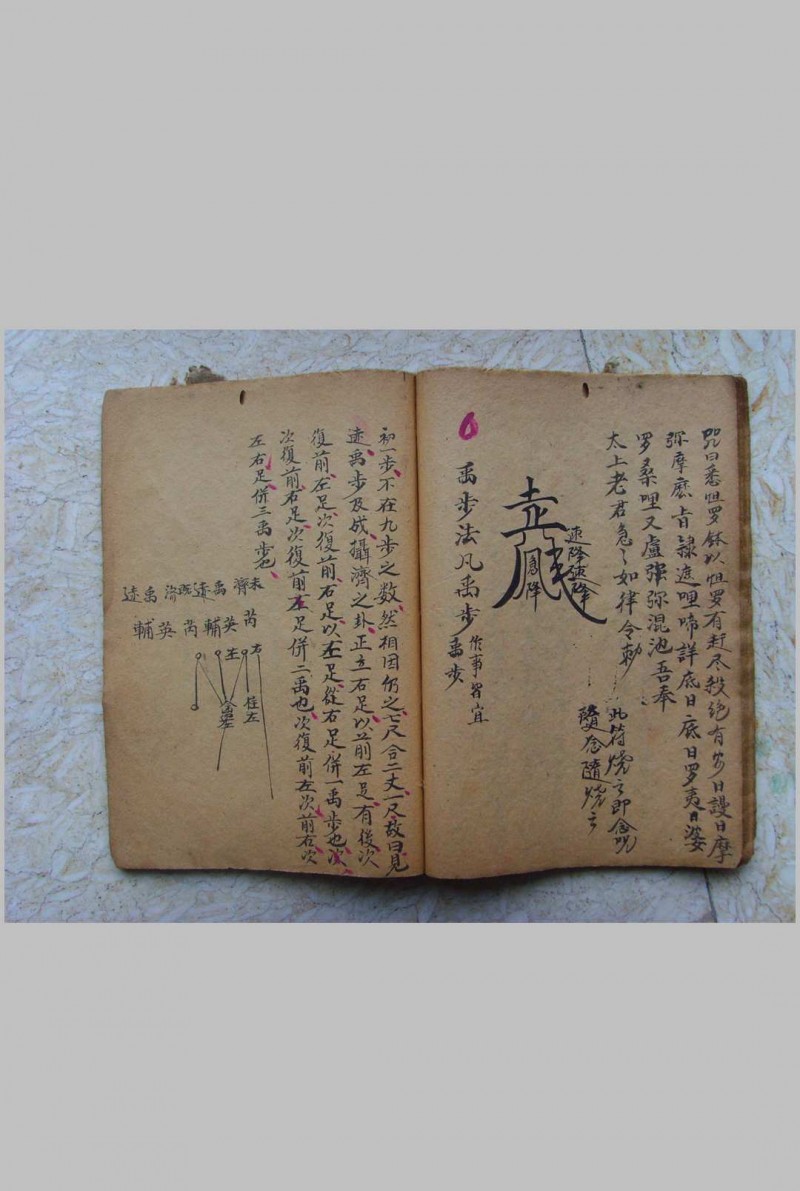 咒曰悉怛罗鉢以怛罗有赶尽殺绝有多日謢日摩
弥摩麽旨隷遮哩啼詳底日底日罗夷日婆
罗桑哩又盧强弥混池吾奉
太上老君急〻如律令勅
此符燒之即念咒
隨念隨燒之
速降速降
鳳降
禹步法凡禹步作事皆宜
禹步
初一步不在九步之数然相因仍之七尺合二丈一尺故曰見
迹禹步及成攝濟之卦正立右足以前左足有後次
復前左足次復前右足以左足從右足併一禹步也次
次復前右足次復前左足併二禹也次復前左次前右次
左右足併三禹步也
未濟禹迹既濟禹迹
芮英輔芮英輔
右
左